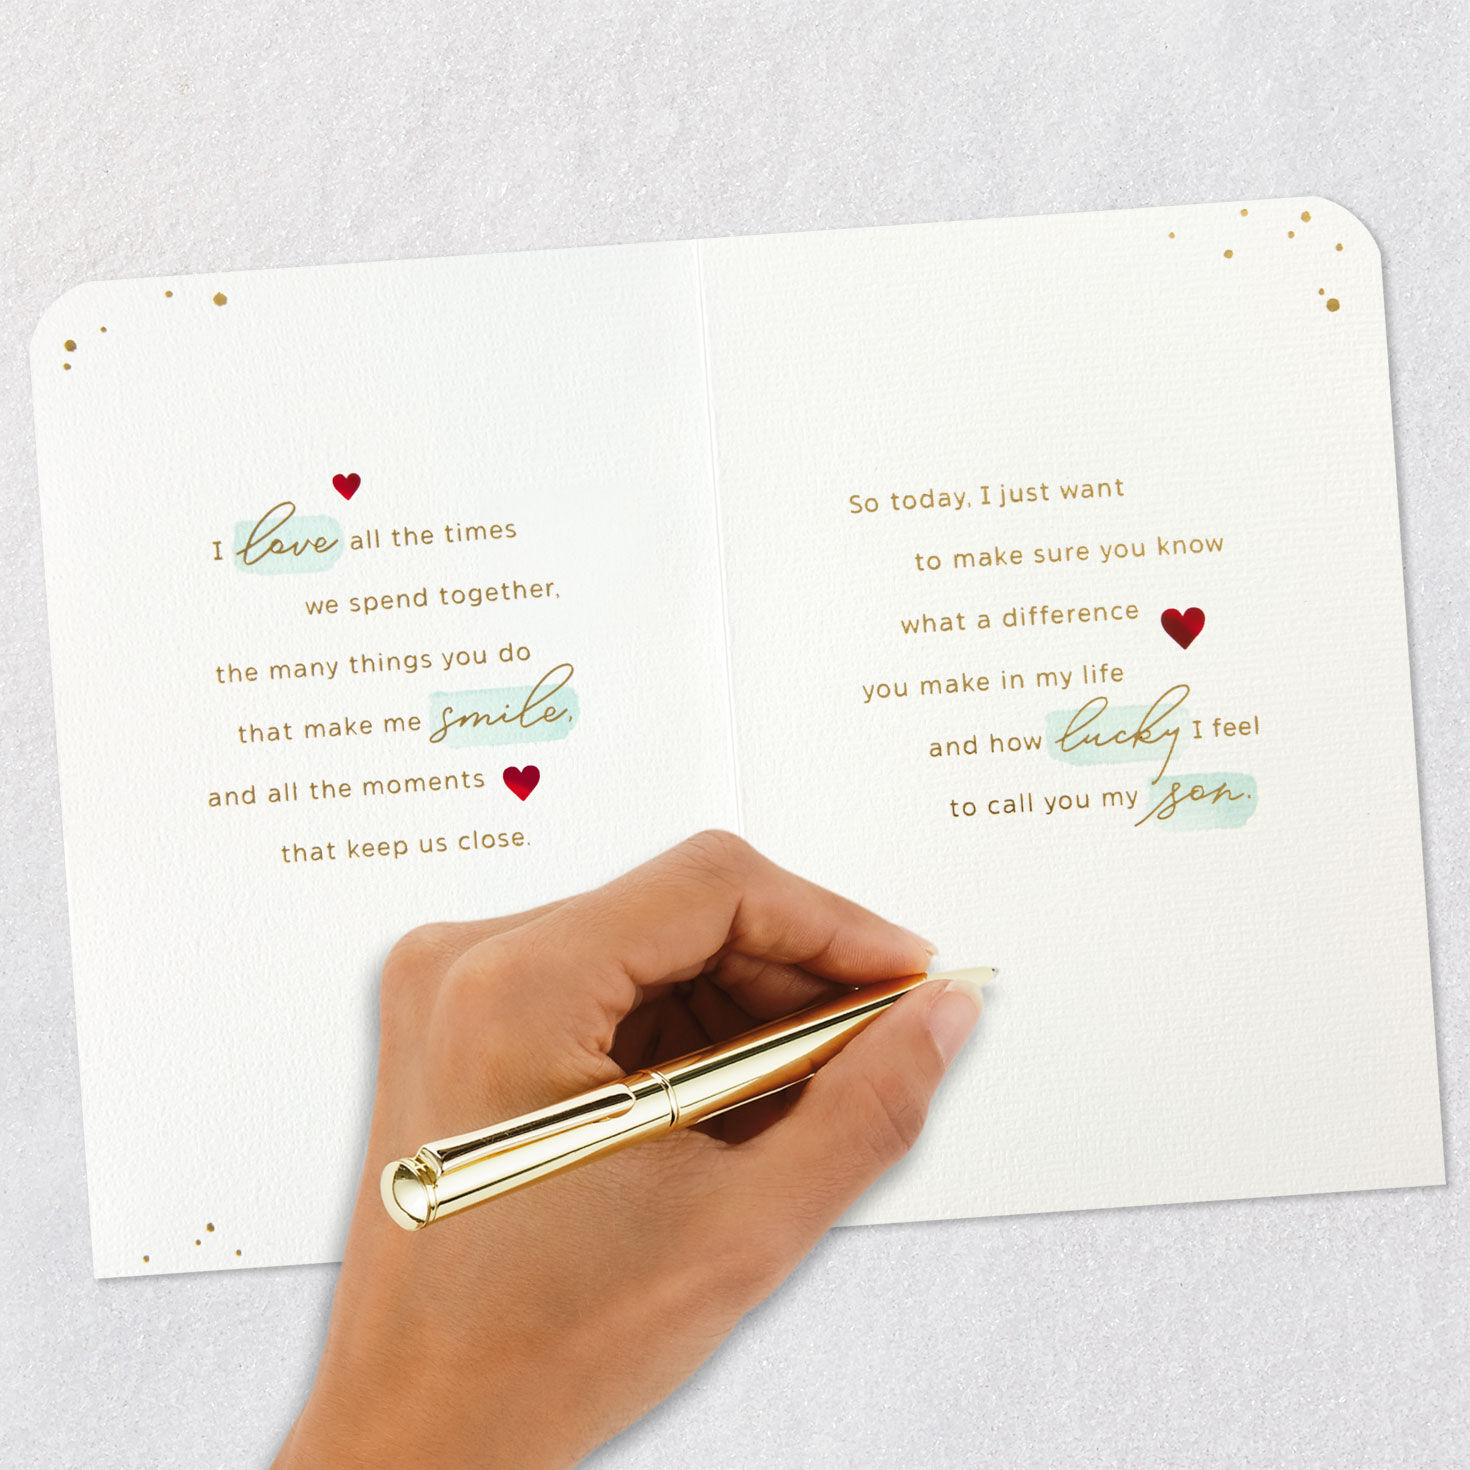 I love all the times
we spend together,
the many things you do
that make me smile,
and all the moments
that keep us close.
So today, I just want
to make sure you know
what a difference
you make in my life
and how lucky I feel
to call you my son.